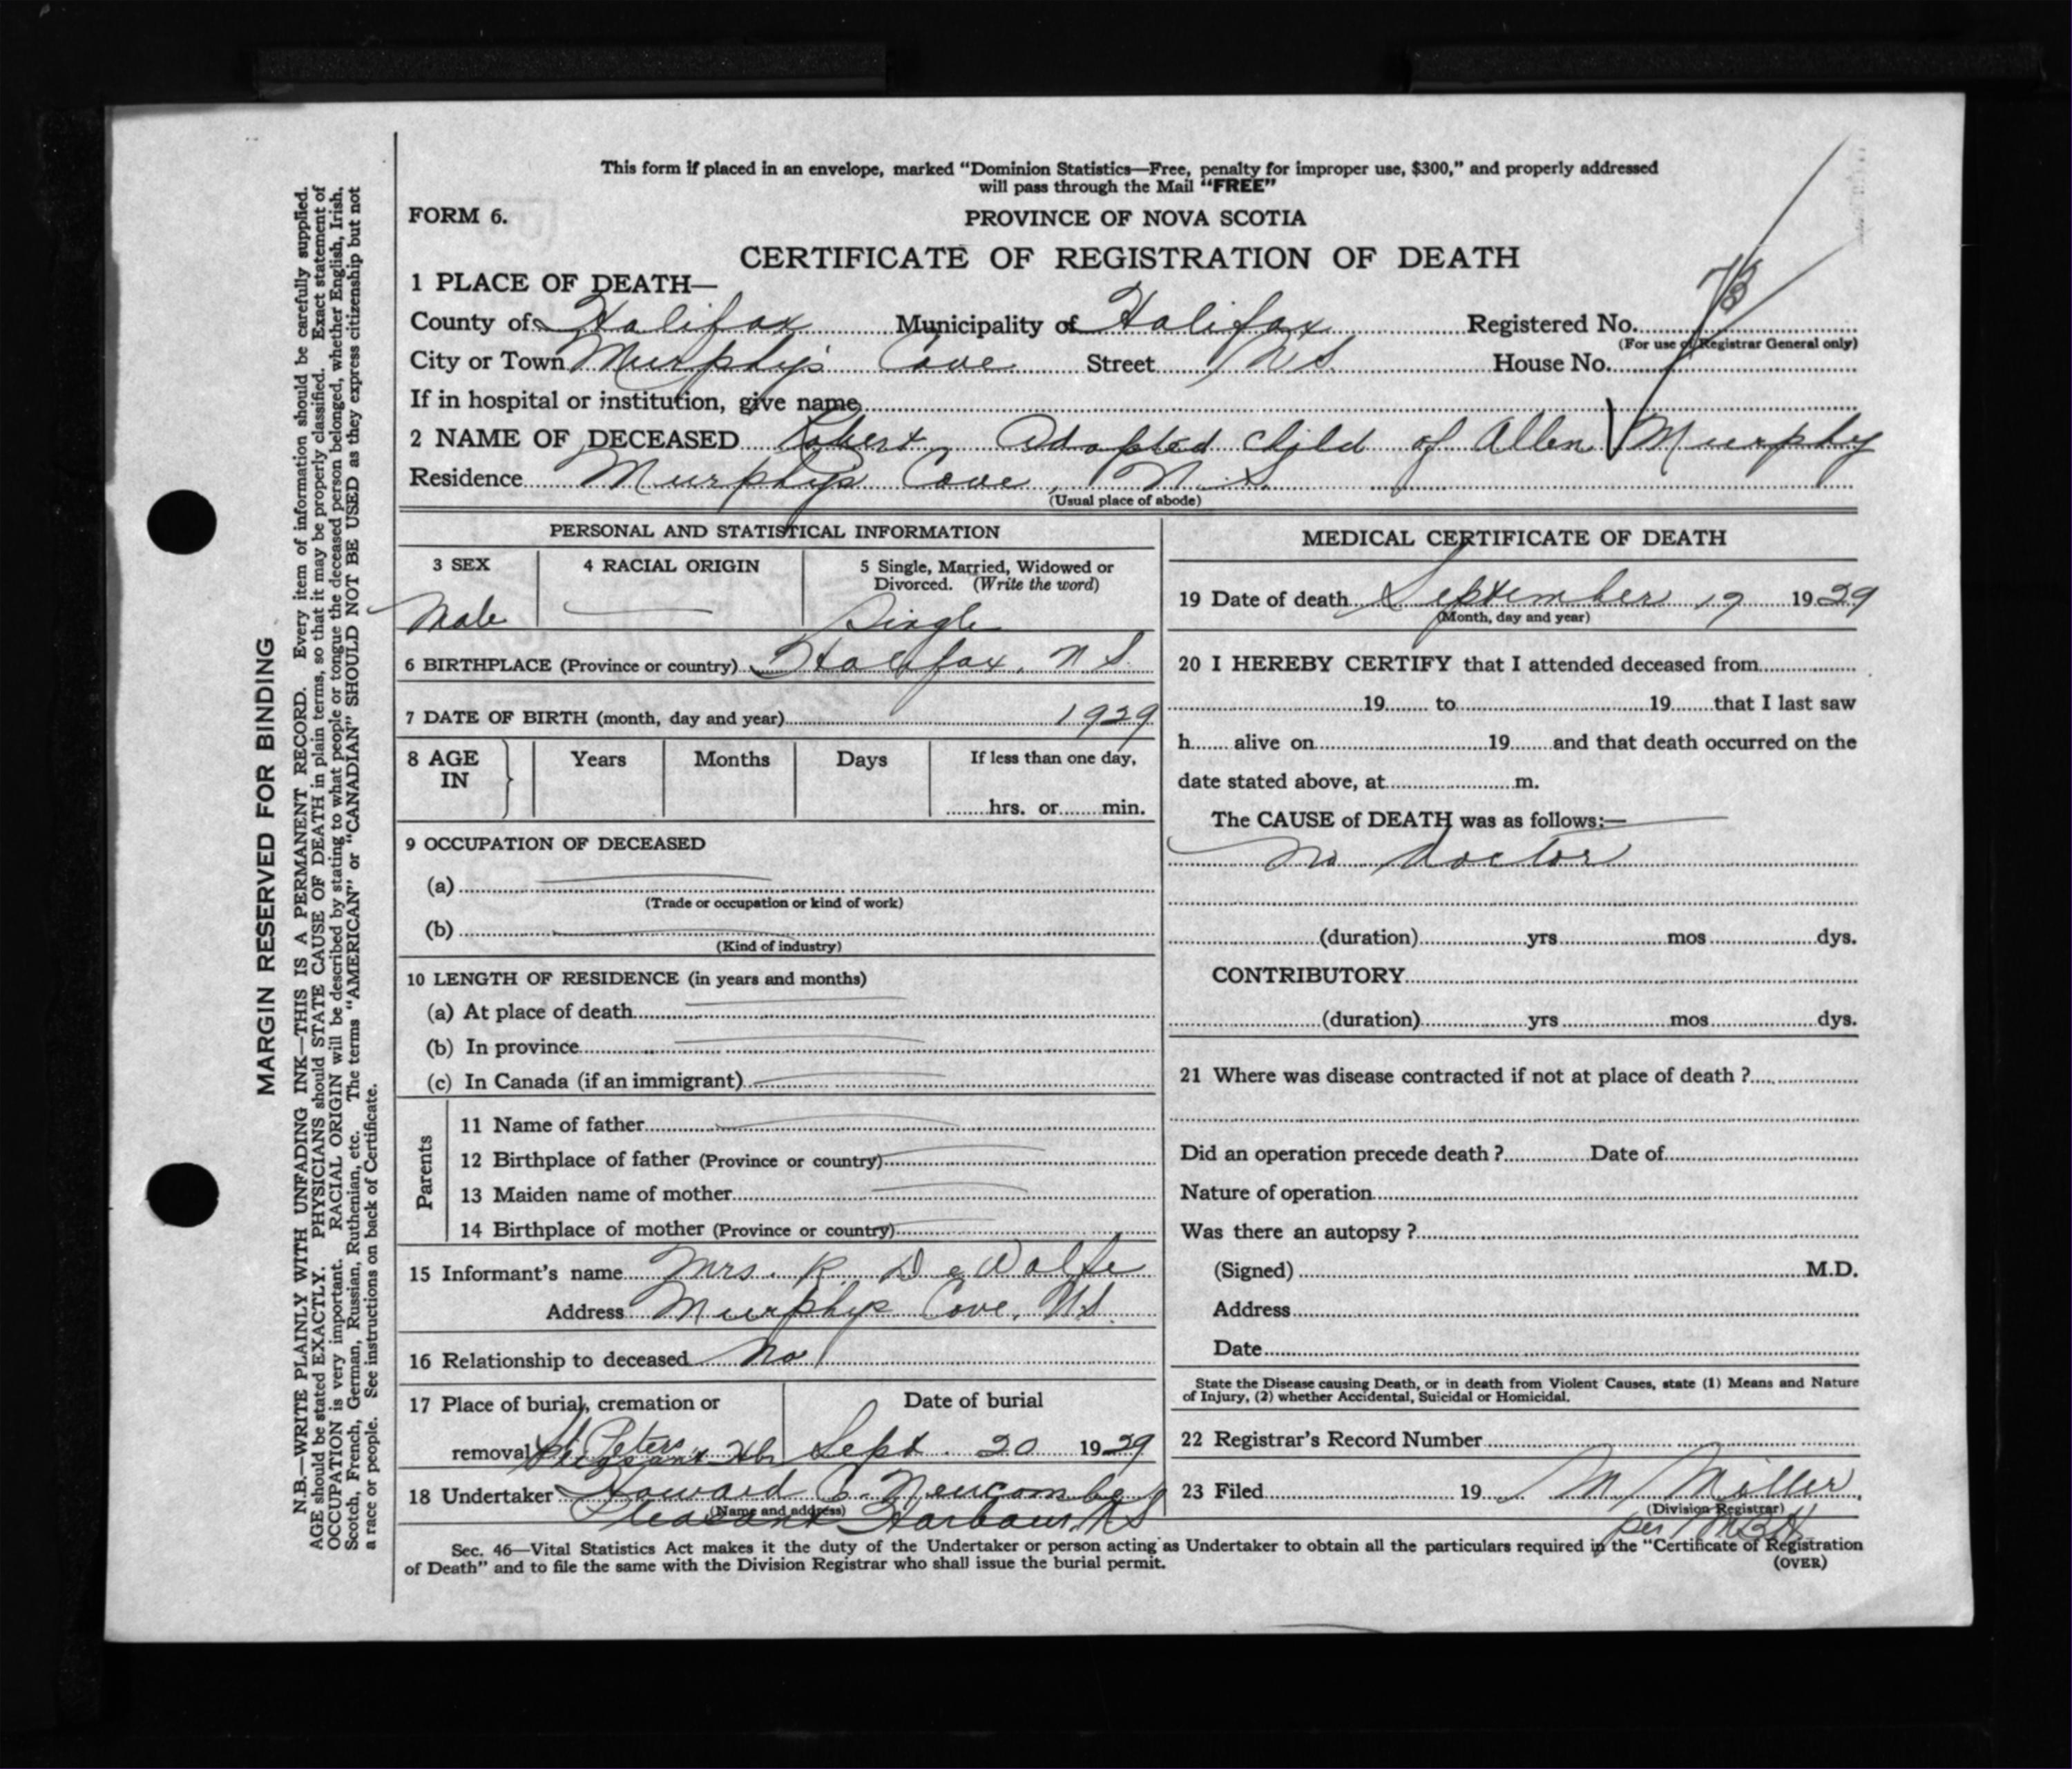 This form if placed in an envelope, marked "Dominion Statistics—Free, penalty for improper use, $300," and properly addressed
will pass through the Mail "FREE"
FORM 6.
PROVINCE OF NOVA SCOTIA
CERTIFICATE OF REGISTRATION OF DEATH
1 PLACE OF DEATH—
County of Halifax Municipality of Halifax Registered No.
(For use of Registrar General only)
City or Town Murphy's Cove Street N S. House No.
If in hospital or institution, give name
2 NAME OF DECEASED Robert Adopted child of Allen Murphy
Residence Murphys Cove, N. S.
(Usual place of abode)
PERSONAL AND STATISTICAL INFORMATION
3 SEX
Male
4 RACIAL ORIGIN
5 Single, Married, Widowed or
Divorced. (Write the word)
Single
6 BIRTHPLACE (Province or country) Halifax, N S.
7 DATE OF BIRTH (month, day and year) 1929
8 AGE IN Years Months Days If less than one day,
hrs. or min.
9 OCCUPATION OF DECEASED
(a)
(Trade or occupation or kind of work)
(b)
(Kind of industry)
10 LENGTH OF RESIDENCE (in years and months)
(a) At place of death
(b) In province
(c) In Canada (if an immigrant)
Parents
11 Name of father
12 Birthplace of father (Province or country)
13 Maiden name of mother
14 Birthplace of mother (Province or country)
15 Informant's name Mrs. R. DeWolfe
Address Murphys Cove, N.S.
16 Relationship to deceased No
17 Place of burial, cremation or
removal St. Peters, Pleasant Hbr
Date of burial
Sept. 20 1929
18 Undertaker Howard C. Newcombe
(Name and address)
Pleasant Harbour, N S
MEDICAL CERTIFICATE OF DEATH
19 Date of death September 19 1929
(Month, day and year)
20 I HEREBY CERTIFY that I attended deceased from
19 to 19 that I last saw
h alive on 19 and that death occurred on the
date stated above, at m.
The CAUSE of DEATH was as follows:—
No doctor
(duration) yrs mos dys.
CONTRIBUTORY
(duration) yrs mos dys.
21 Where was disease contracted if not at place of death ?
Did an operation precede death ? Date of
Nature of operation
Was there an autopsy ?
(Signed) M.D.
Address
Date
State the Disease causing Death, or in death from Violent Causes, state (1) Means and Nature
of Injury, (2) whether Accidental, Suicidal or Homicidal.
22 Registrar's Record Number
23 Filed 19 M Miller
(Division Registrar)
per
Sec. 46—Vital Statistics Act makes it the duty of the Undertaker or person acting as Undertaker to obtain all the particulars required in the "Certificate of Registration
of Death" and to file the same with the Division Registrar who shall issue the burial permit.
(OVER)
MARGIN RESERVED FOR BINDING
N.B.—WRITE PLAINLY WITH UNFADING INK—THIS IS A PERMANENT RECORD. Every item of information should be carefully supplied.
AGE should be stated EXACTLY. PHYSICIANS should STATE CAUSE OF DEATH in plain terms, so that it may be properly classified. Exact statement of
OCCUPATION is very important. RACIAL ORIGIN will be described by stating to what people or tongue the deceased person belonged, whether English, Irish,
Scotch, French, German, Russian, Ruthenian, etc. The terms "AMERICAN" or "CANADIAN" SHOULD NOT BE USED as they express citizenship but not
a race or people. See instructions on back of Certificate.